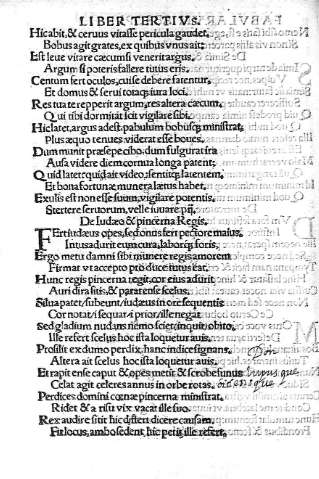 LIBER TERTIVS.
Hic abit, & ceruus vitasse pericula gaudet,
Bobus agit grates, ex quibus vnus ait:
Est leue vitare cæcum si venerit argus,
Argum si poteris fallere tutus eris.
Centum fert oculos, cuise debere fatentur,
Et domus & serui totaq; iura loci.
Res tua te repperit argum, res altera cæcum,
Qui tibi dormitat scit vigilare sibi.
Hic latet, argus adest: pabulum bobusq; ministrat,
Plus æquo tenues viderat esse boues.
Dum munit præsepe cibo. dum fulgura stra
Ausa videre diem cornua longa patent;
Quid latet? quid ait video, sentitq; latentem,
Et bona fortunæ munera lætus habet.
Exulis est non esse suum, vigilare potentis,
Stertere seruorum, velle iuuare pij.
De Iudæo & pincerna Regis.
Fert iudæus opes, sed onus fert pectore maius,
Intus adurit eum cura, labor q; foris.
Ergo metu damni sibi munere regis amorem
Firmat vt accepto pro duce tutus eat.
Hunc regis pincerna regit, cor eius adurit
Auri dira sitis, & parat ense scelus.
Silua patet, subeunt, Iudæus in ore sequentis
Cor notat, i sequar: i prior, ille negat
Sed gladium nudans nemo sciet, inquit, obito,
Ille refert scelus hoc ista loquetur auis,
Prosilit ex dumo perdix, hanc indice signans,
Altera ait scelus hoc ista loquetur auis.
Et rapit ense caput & opes metit & scrobe funus
Celat agit celeres annus in orbe rotas.
Perdices domini cœnæ pincerna ministrat,
Ridet & a risu vix vacat ille suo.
Rex audire sitit hic differt dicere causam,
Fit locus, ambo sedent, hic petit ille refert,